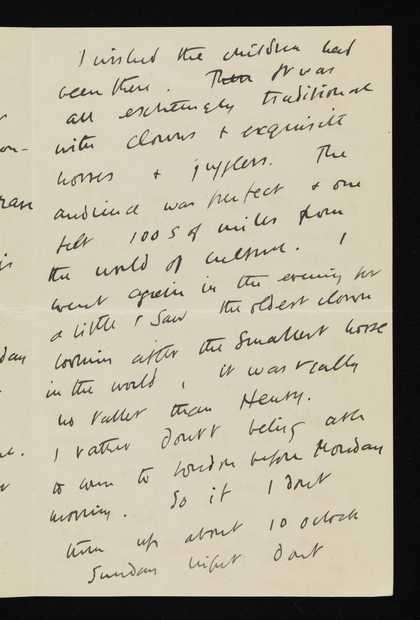 I wished the children had
been there. Then It was
all extremely traditional
with clowns + exquisite
horses + jugglers. The
audience was perfect + one
felt 100s of miles from
the world of culture. I
went again in the evening for
a little & saw the oldest clown
looking after the smallest horse
in the world, it was really
no taller than Henry.
I rather doubt being able
to come to London before Monday
morning. So if I dont
turn up about 10 oclock
Sunday night dont
on-
rase
is
day